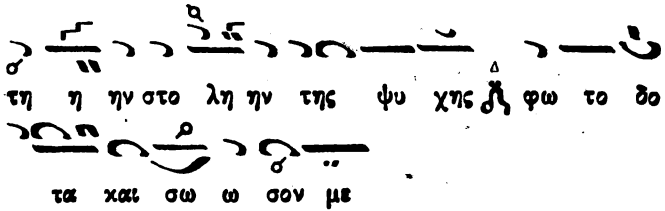 τη η ην στο λη ην της ψυ χης φω το δο
τα και σω ω σον με